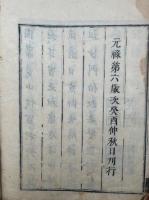 元祿第六歲次癸酉仲秋日刊行